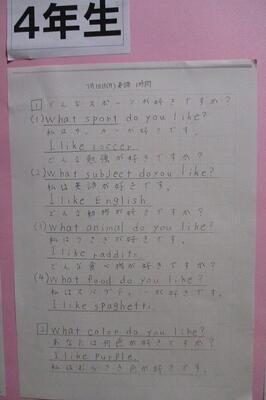 4年生
7月12日(月)英語 1時間
1 どんなスポーツが好きですか?
(1) What sport do you like?
私はサッカーが好きです。
I like soccer.
どんな勉強が好きですか?
(2) What subject do you like?
私は英語が好きです。
I like English.
どんな動物が好きですか?
(3) What animal do you like?
私はうさぎが好きです。
I like raddits.
どんな食べ物が好きですか?
(4) What food do you like?
私はスパゲティーが好きです。
I like spaghetti.
2 What color do you like?
あなたは何色が好きですか?
I like purple.
私はむらさき色が好きです。